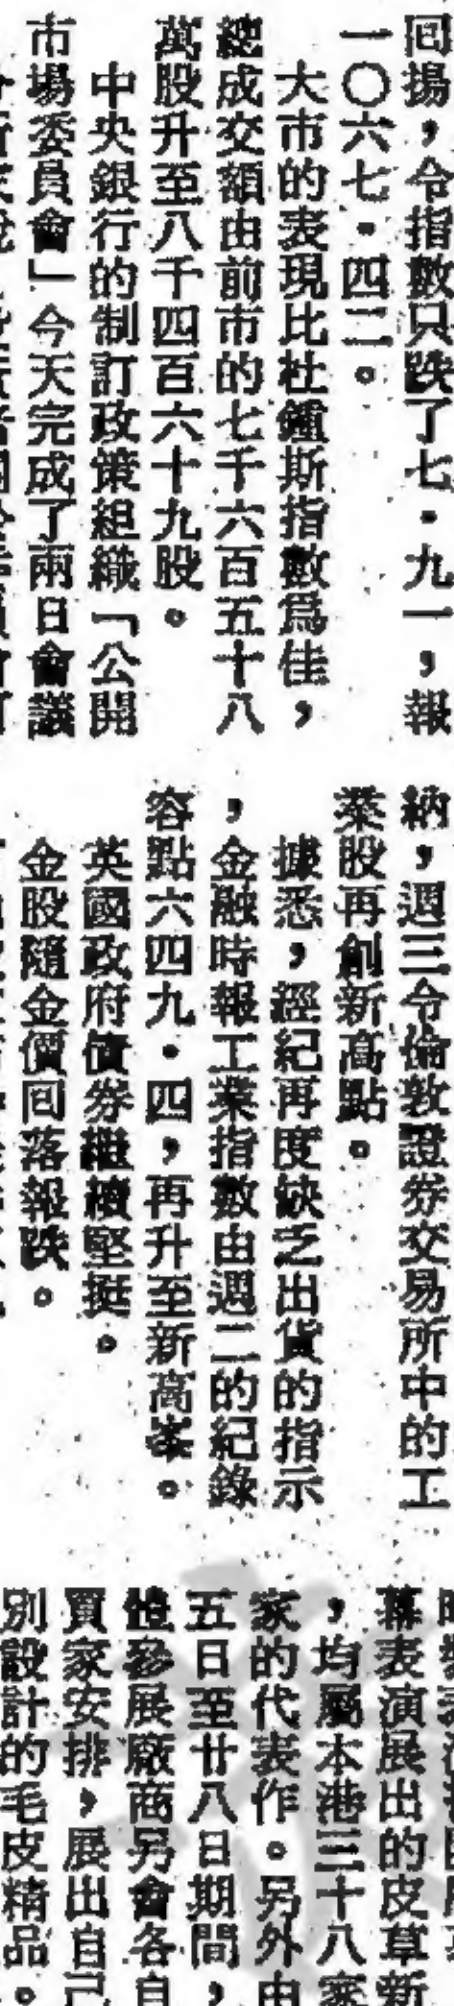 囘揚，令指數只跌了七．九一，報
一〇六七．四二。
大市的表現比杜鍾斯指數爲佳，
總成交額由前市的七千六百五十八
萬股升至八千四百六十九股。
中央銀行的制訂政策組織「公開
市場委員會」今天完成了兩日會議
納，週三令倫敦證劵交易所中的工
業股再創新高點。
據悉，經紀再度缺乏出貨的指示
，金融時報工業指數由週二的紀錄
容點六四九．四，再升至新高峯。
英國政府債劵繼續堅挺。
金股隨金價囘落報跌。
幕表演展出的皮草新
，均屬本港三十八家
家的代表作。另外由
五日至廿八日期間，
他參展廠商另會各自
買家安排，展出自己
別設計的毛皮精品。